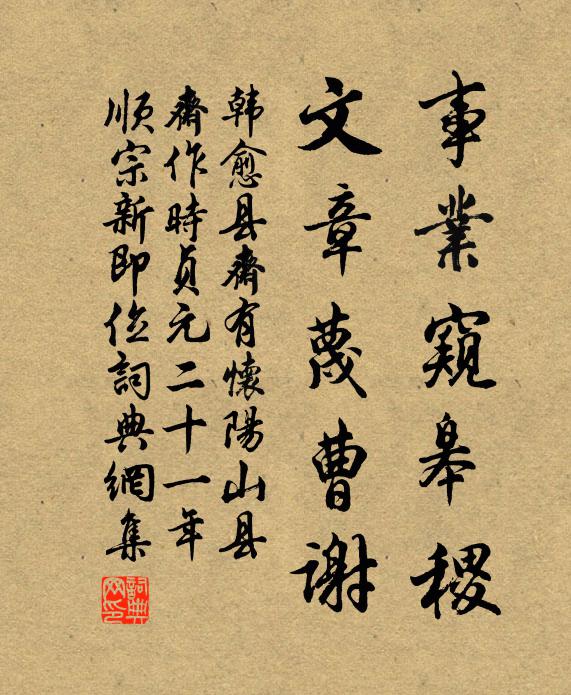 事業窺皋稷
文章蔑曹謝
韩愈县齋有懷陽山县
齋作時貞元二十一年
順宗新即位詞典網集
詞典网印